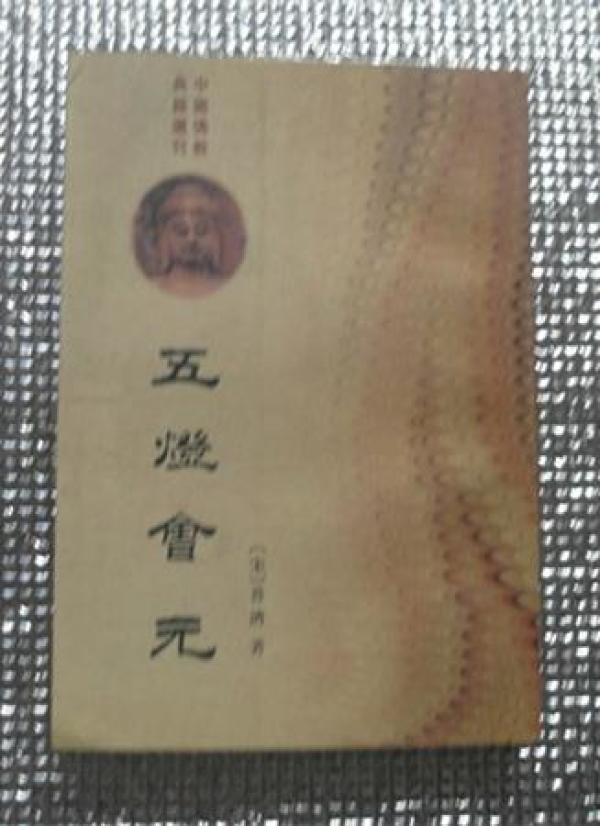 中國佛教
典籍選刊
五燈會元
〔宋〕普濟 著